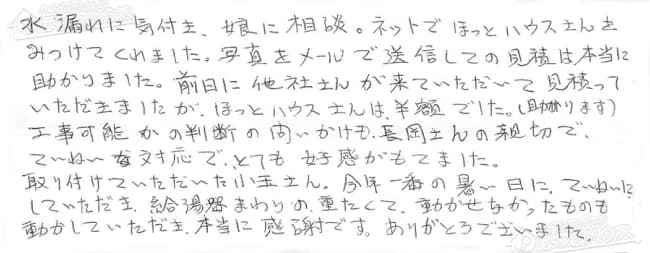 水漏れに気付き、娘に相談。ネットでほっとハウスさんを
みつけてくれました。写真をメールで送信しての見積は本当に
助かりました。前日に他社さんが来ていただいて見積って
いただきましたが、ほっとハウスさんは、半額でした。(助かります)
工事可能かの判断の問いかけも、長岡さんの親切で、
ていねいな対応で、とても好感がもてました。
取り付けていただいた小玉さん。今年一番の暑い日に、ていねいに
していただき、給湯器まわりの、重たくて、動かせなかったものも
動かしていただき、本当に感謝です。ありがとうございました。